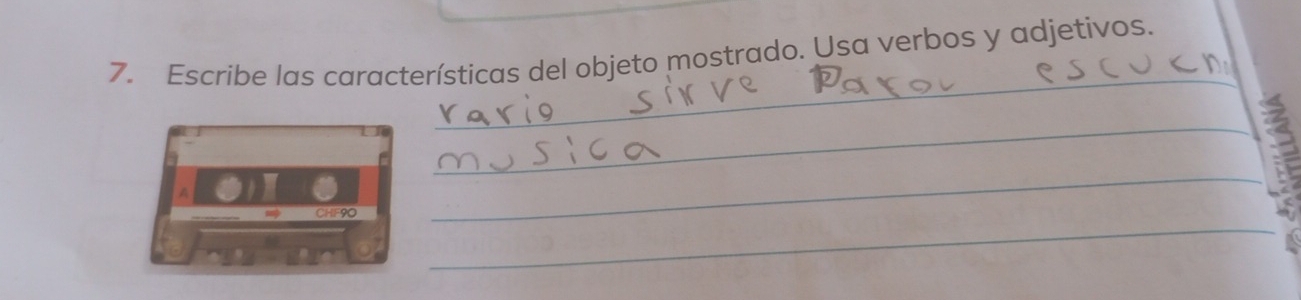 7. Escribe las características del objeto mostrado. Usa verbos y adjetivos.
rario sirve Para escuch
musica
A
CHF90
SANTILLANA